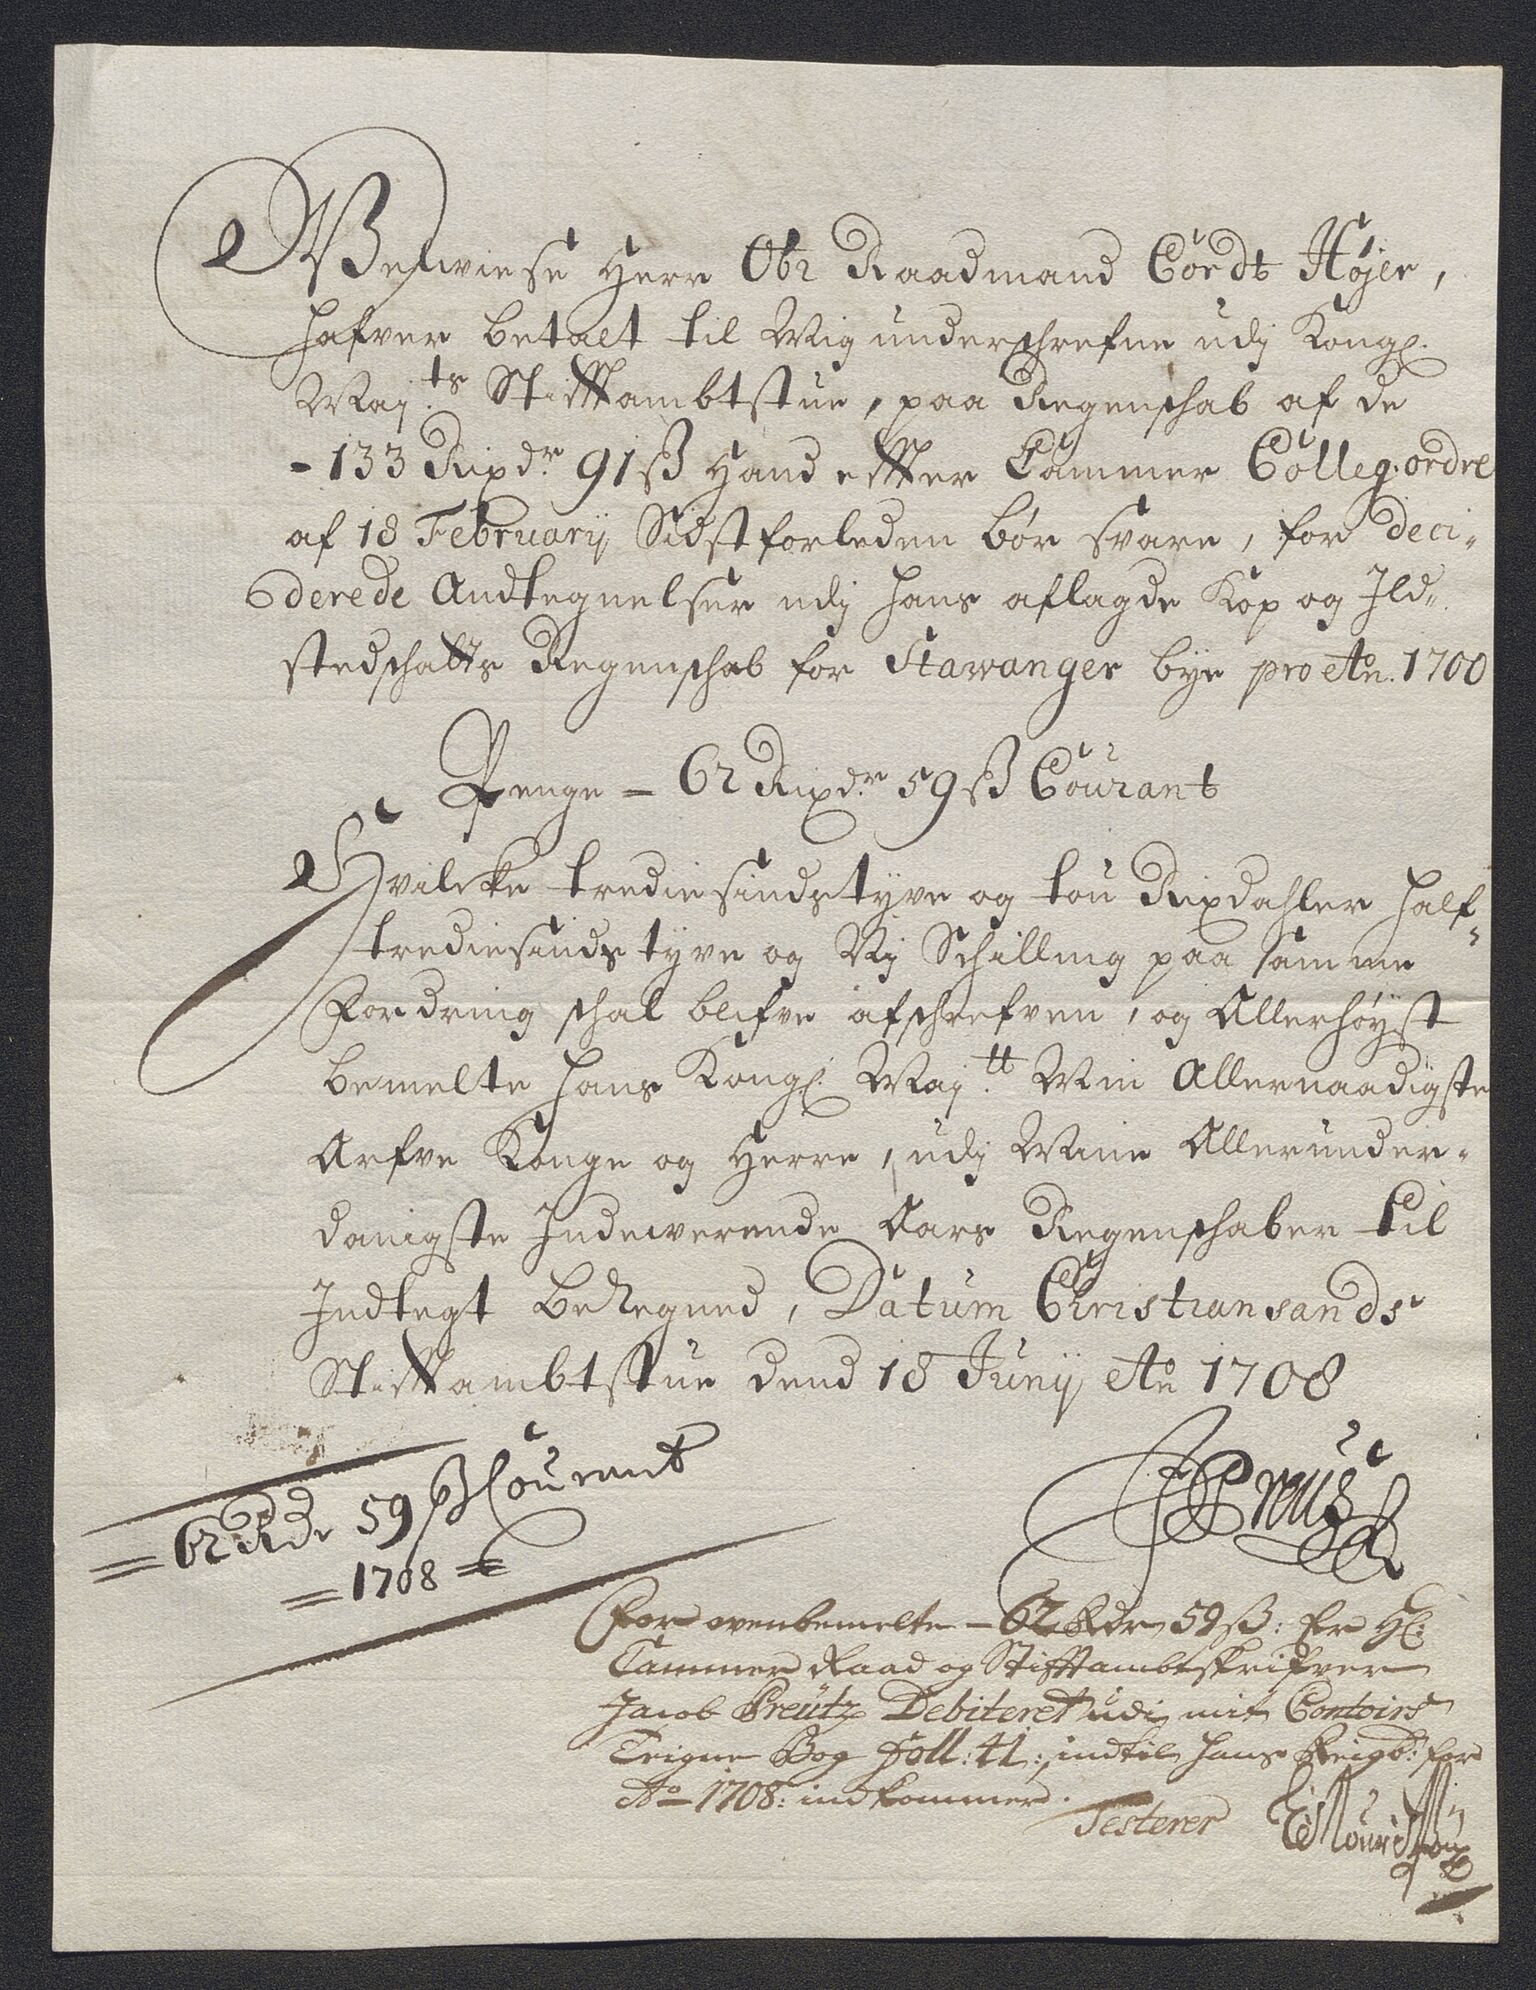 Welwiese Herr Obr Raadmand Cordt Højer,
hafver betalt til Mig underschrefne udj Kongl.
Maj:ts Stifftambtstue, paa Regenschab af de
- 133 Rixdr 91 ß hand effter Cammer Colleg: ordre
af 18 February Sidstforleden bør svare, for deci-
derede Andtegnelser udj hans aflagde Kop og Ild-
stedschatts Regenschab for Stawanger bye pro Ao. 1700
Penge - 62 Rixdr 59 ß Courant
Hvilcke trediesindstyve og tou Rixdahler half-
trediesindstyve og Nij Schilling paa samme
Fordring schal blifve afschrefven, og Allerhøyst
bemelte hans Kongl. Maj:tt Min Allernaadigste
Arfve Konge og Herre, udj Mine Allerunder-
danigste Indeværende Aars Regenschaber til
Indtegt bereguned, Datum Christiansands
Stifftambtstue dend 18 Junij Ao 1708
= 62 Rdr 59 ß Courant
= 1708 =
JPreus
For ovenbemelte - 62 Rdr 59 ß: Er Hl:
Cammer Raad og Stifftambtskrifver
Jacob Preutz Debiteret udi mit Contoirs
Teigne Bog Foll: 41:, indtil hans Reigb: for
Ao 1708: indkommer.
Testerer